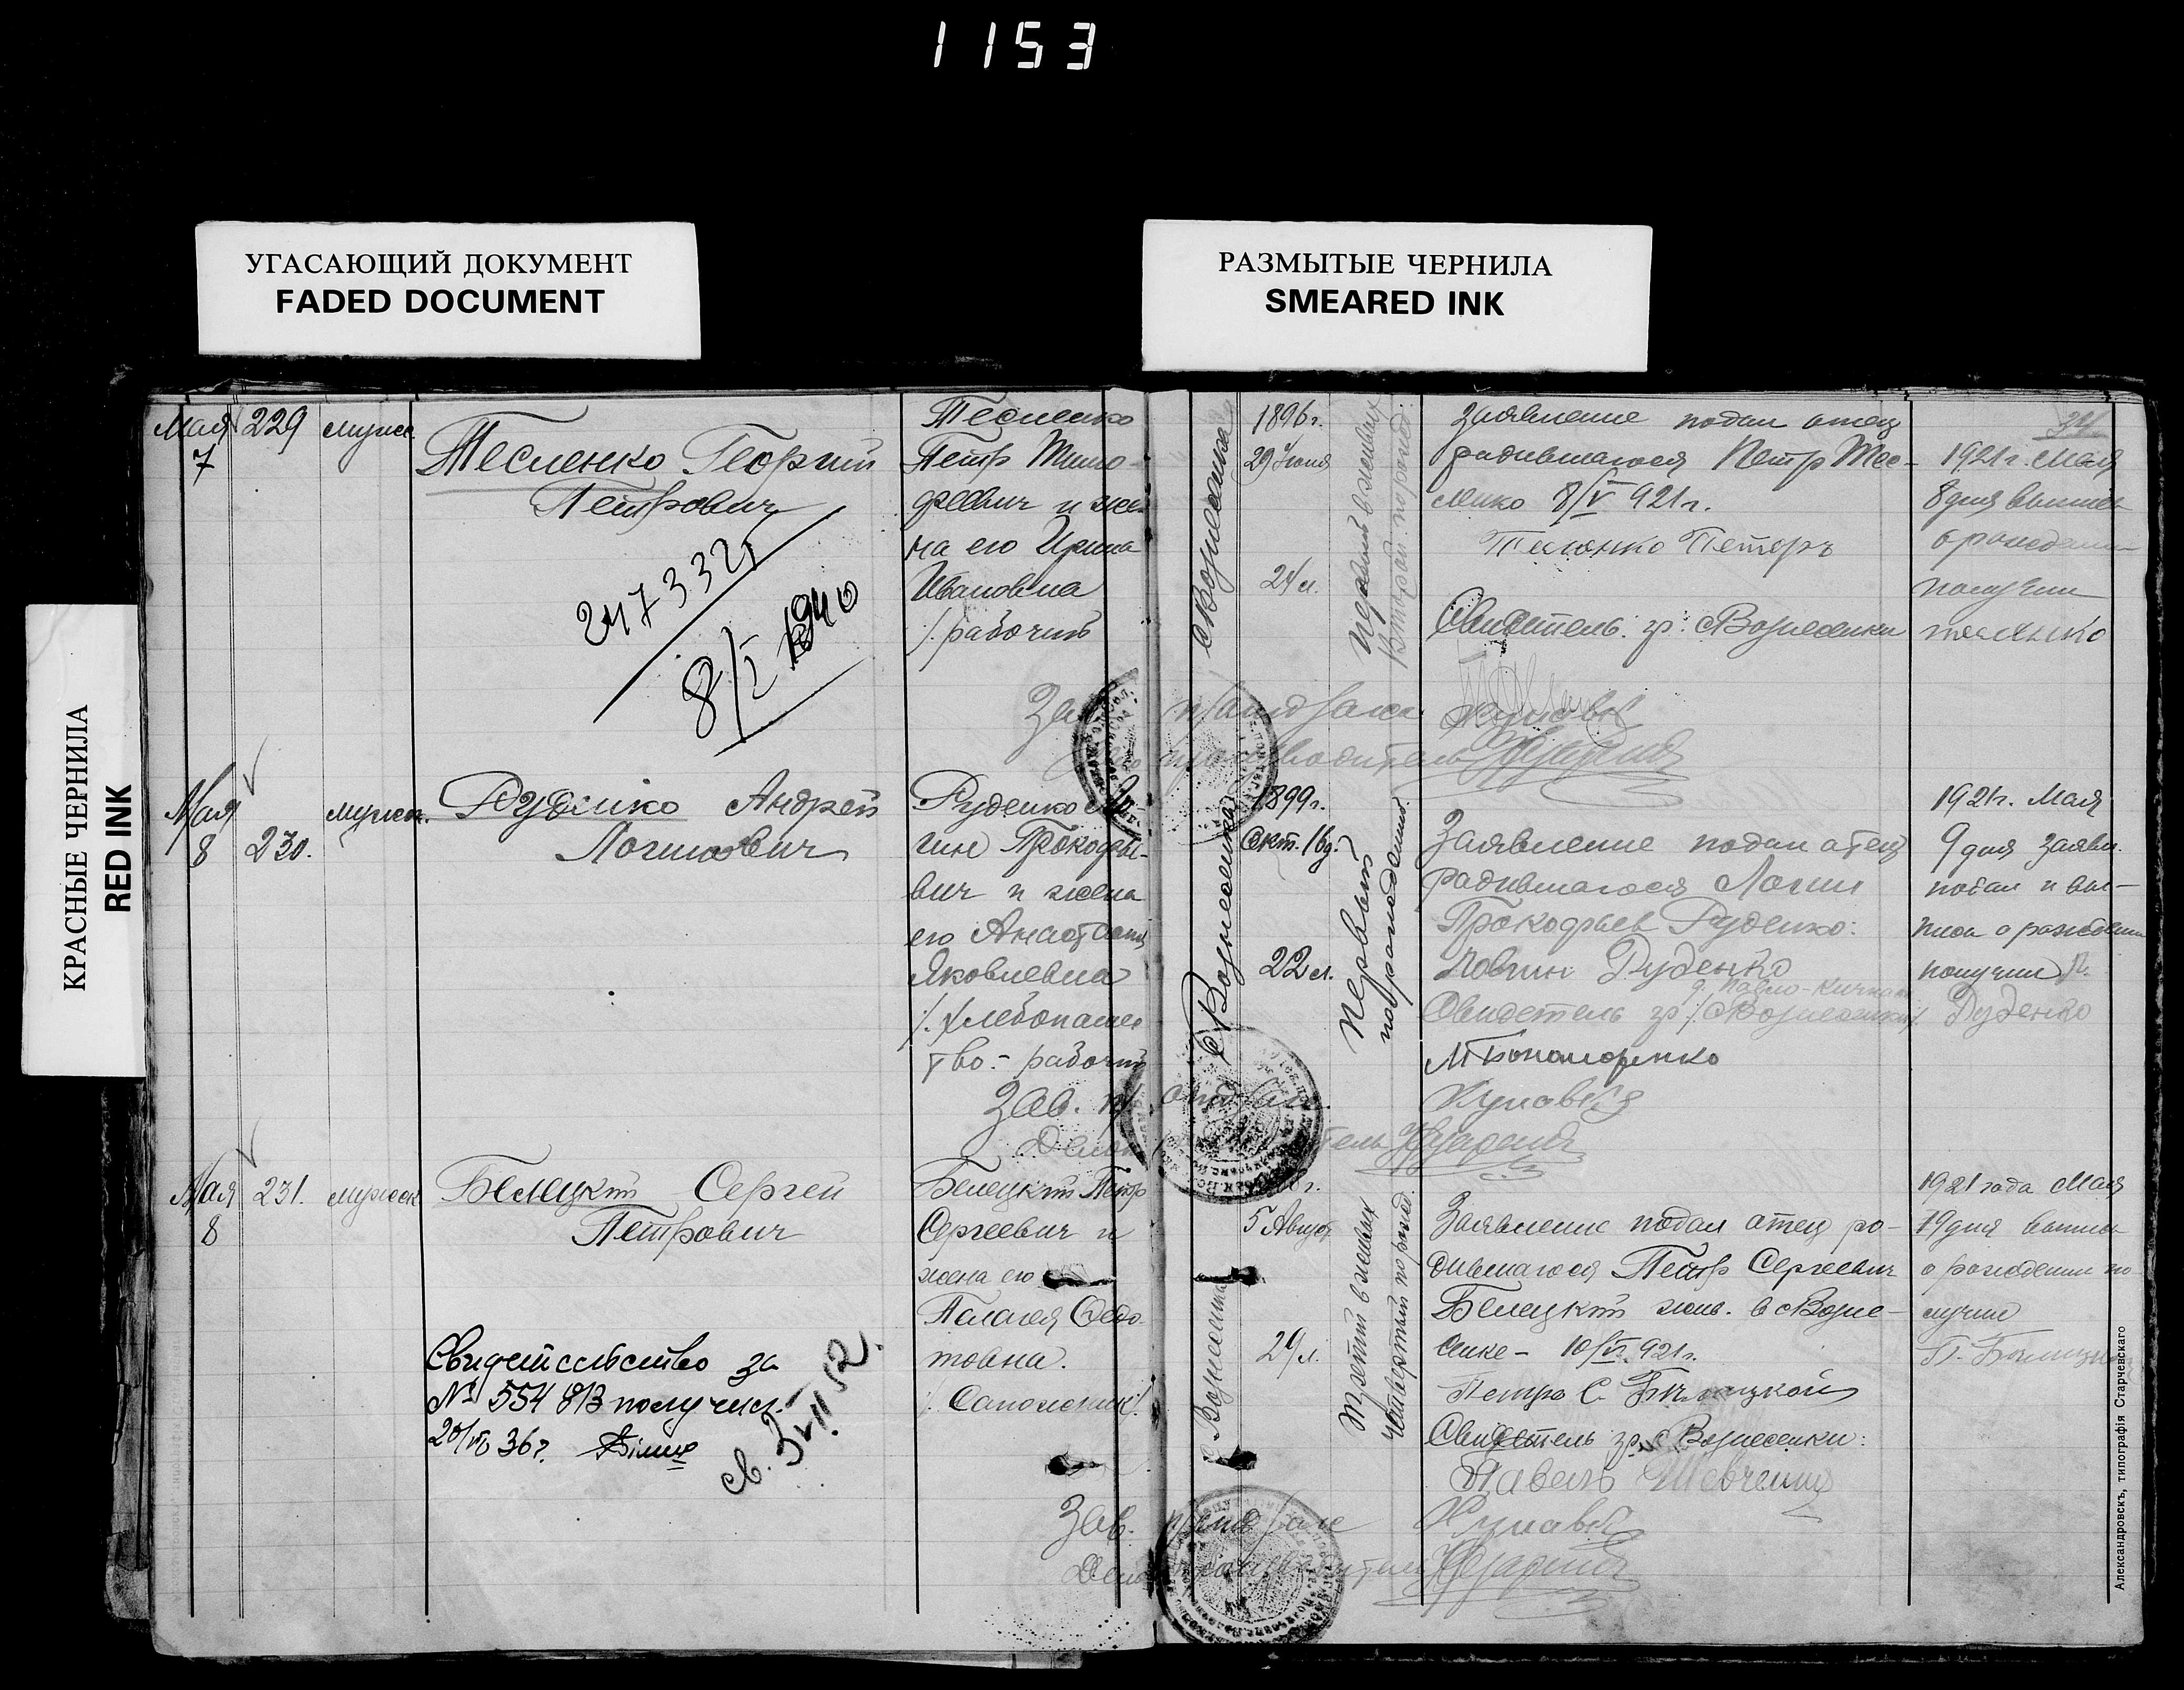 1153
УГАСАЮЩИЙ ДОКУМЕНТ
FADED DOCUMENT
РАЗМЫТЫЕ ЧЕРНИЛА
SMEARED INK
КРАСНЫЕ ЧЕРНИЛА
RED INK
Мая 229 мужс.
7
Тесленко Георгий
Петрович
247332
8/I 1940
Тесленко
Петр Тимо-
феевич и же-
на его Ирина
Ивановна
/. рабочий
с Вознесенка
1896 г.
29 Июня
24 л.
Первый в живых
Второй по рожд.
Заявление подал отец
родившагося Петр Тес-
ленко 8/V 921 г.
Тесленко Петоръ
Свидетель: гр. с Вознесенки
1921 г. Мая
8 дня выпись
о рождении
получил
тесленко
Мая
8 230. мужск.
Руденко Андрей
Логинович
Руденко Ло-
гин Прокофье-
вич и жена
его Анастасия
Яковлевна
/. хлебопашес
тво - рабочий
с Вознесенка
1899 г.
Окт. 16 д.
22 л.
Первый
по рождению
Заявление подал отец
родившагося Логин
Прокофьев Руденко:
Ловгин Руденко
Свидетель гр. с Вознесенки
М Пономоренко
Кулавсв
1921 г. Мая
9 дня заявл.
подал и вы-
пись о рождении
получил Л.
Руденко
Зав. п/отд Зап.
Мая 231. мужск
8
Белецкий Сергей
Петрович
Свидетельство за
№ 554813 получил.
20/VI 36 г.
Белецкий Петр
Сергеевич и
жена его
Палагея Федо
товна.
/. Сапожник/.
с Вознесенка
5 Август
29 л.
Третий в живых
Четвертый по рожд.
Заявление подал отец ро-
дившагося Петр Сергеевич
Белецкий жив. в с Возне-
сенке - 10/V 921 г.
Петро С. Белецкой
Свидетель гр. с Вознесенки:
Павелъ Шевченко
1921 года Мая
19 дня выпись
о рождении по
лучил
Александровскъ, типографія Старчевскаго